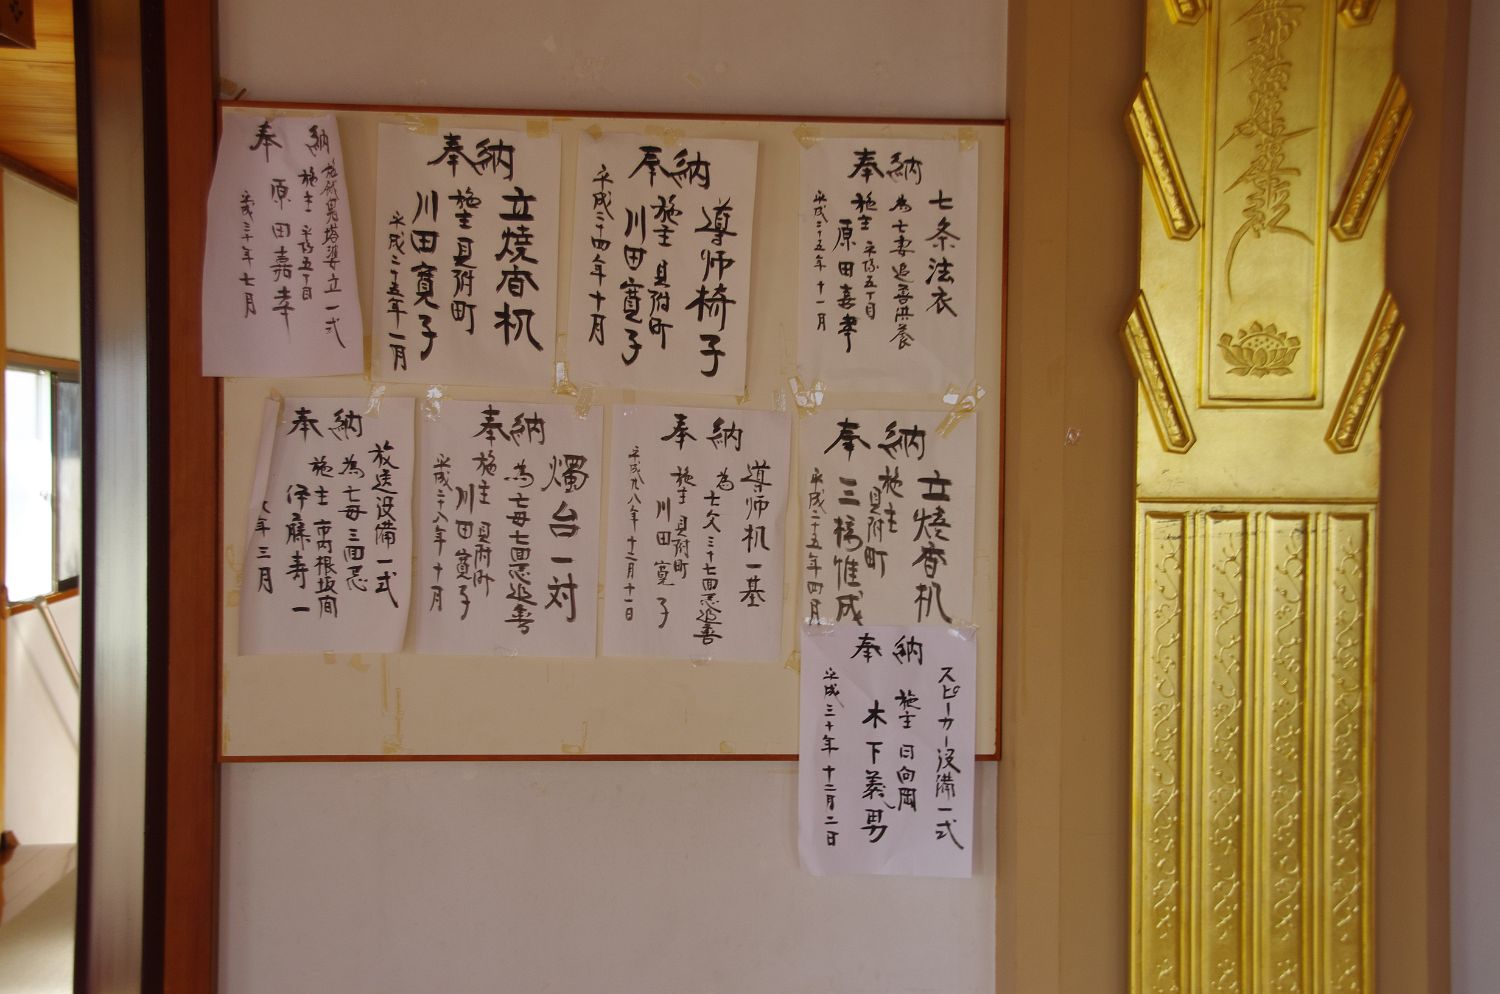 奉納
七条法衣
為亡妻追善供養
施主
原田嘉孝
平成二十五年十一月
奉納
導師椅子
施主 貝附町
川田寛子
平成二十四年十月
奉納
立焼香机
施主 貝附町
川田寛子
平成二十五年一月
奉納
施主
原田嘉孝
平成三十年七月
奉納
立焼香机
施主 貝附町
平成二十五年四月
奉納
導師机一基
施主 貝附町
川田寛子
奉納
燭台一対
為亡母七回忌追善
施主 貝附町
川田寛子
平成二十八年十月
奉納
放送設備一式
為亡母三回忌
施主 市内根坂間
伊藤寿一
年三月
奉納
スピーカー設備一式
施主 日向岡
木下義男
平成三十年十二月二日